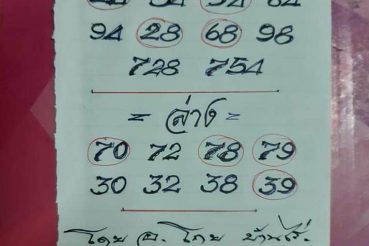 94 28 68 98
728 754
= ล่าง =
70 72 78 79
30 32 38 39
โดย อ. โภย บ้านไร่.